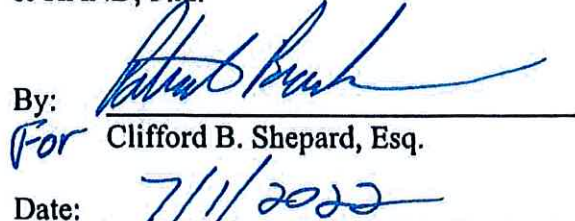 By:
For Clifford B. Shepard, Esq.
Date: 7/1/2022